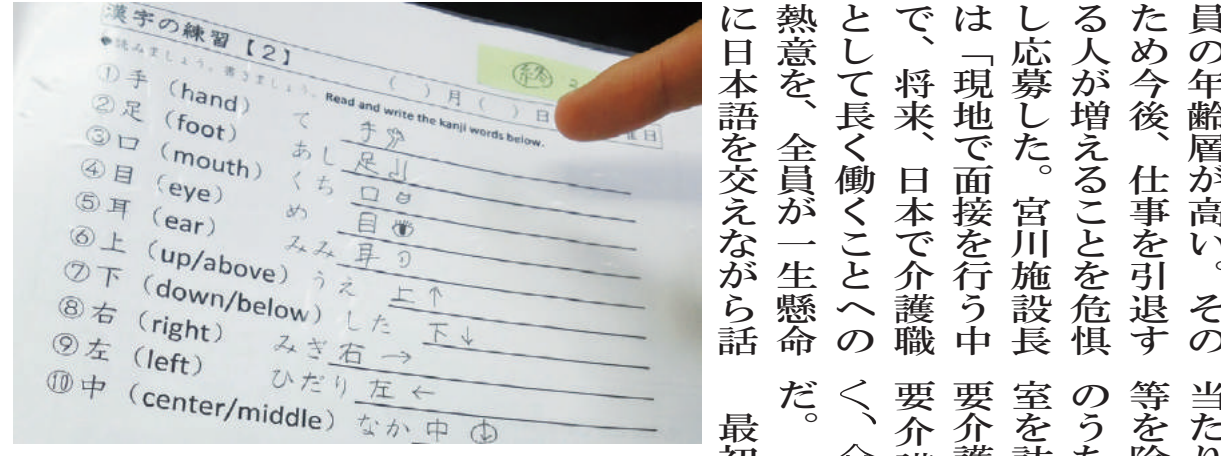 漢字の練習【2】
◆読みましょう。書きましょう。Read and write the kanji words below.
( )月( )日
終
①手 (hand) て 手
②足 (foot) あし 足
③口 (mouth) くち 口
④目 (eye) め 目
⑤耳 (ear) みみ 耳
⑥上 (up/above) うえ 上 ↑
⑦下 (down/below) した 下 ↓
⑧右 (right) みぎ 右 →
⑨左 (left) ひだり 左 ←
⑩中 (center/middle) なか 中
員の年齢層が高い。その
ため今後、仕事を引退す
る人が増えることを危惧
し応募した。宮川施設長
は「現地で面接を行う中
で、将来、日本で介護職
として長く働くことへの
熱意を、全員が一生懸命
に日本語を交えながら話
当たり
等を
のう
室を
要介
要介
く、
だ。
最初